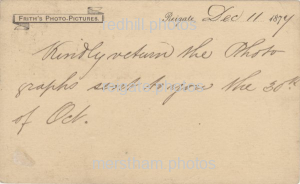 FRITH'S PHOTO-PICTURES.
Reigate, Dec 11 1874
Kindly return the Photo
graphs sent to you the 30th
of Oct.
redhill photos
reigate photos
merstham photos